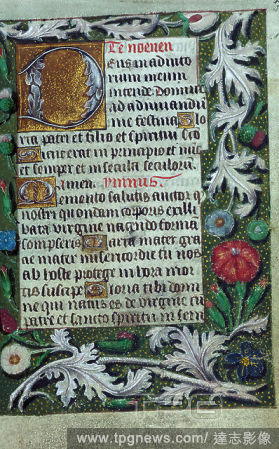 Te noenen
Deus in adiuto
rium meum
intende Domine
ad adiuuandu
me festina Glo
ria patri et filio et spiritui sco
Sicut erat in principio et nuc
et semper et in secula seculoru
amen ymnus
Memento salutis auctor q
nostri quondam corporis ex illi
bata virgine nascendo forma
sumpseris Maria mater gra
cie mater misericordie tu nos
ab hoste protege in hora mor
tis suscipe Gloria tibi domi
ne qui natus es de virgine cu
patre et sancto spiritu in sem
www.tpgnews.com/ 達志影像